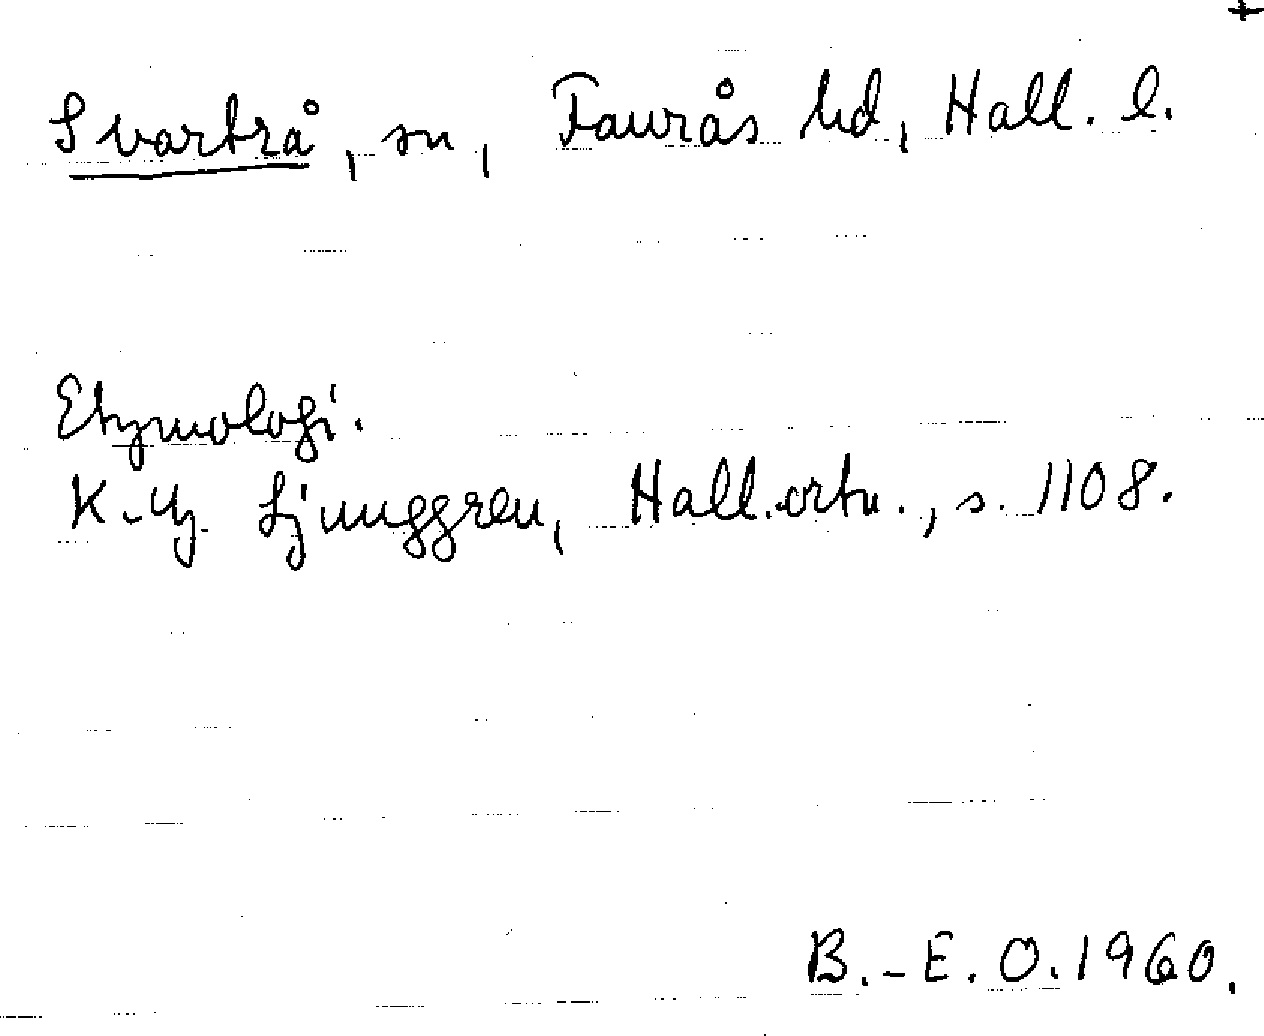 +
Svartrå, sn, Faurås hd, Hall. l.
Etymologi.
K.-G. Ljunggren, Hall. ortn., s. 1108.
B.-E. O. 1960.